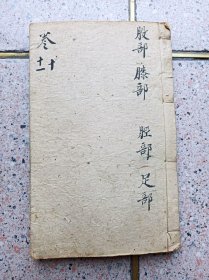 股部 膝部 脛部 足部
卷
十
十一